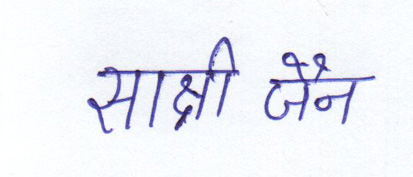 साक्षी जैन